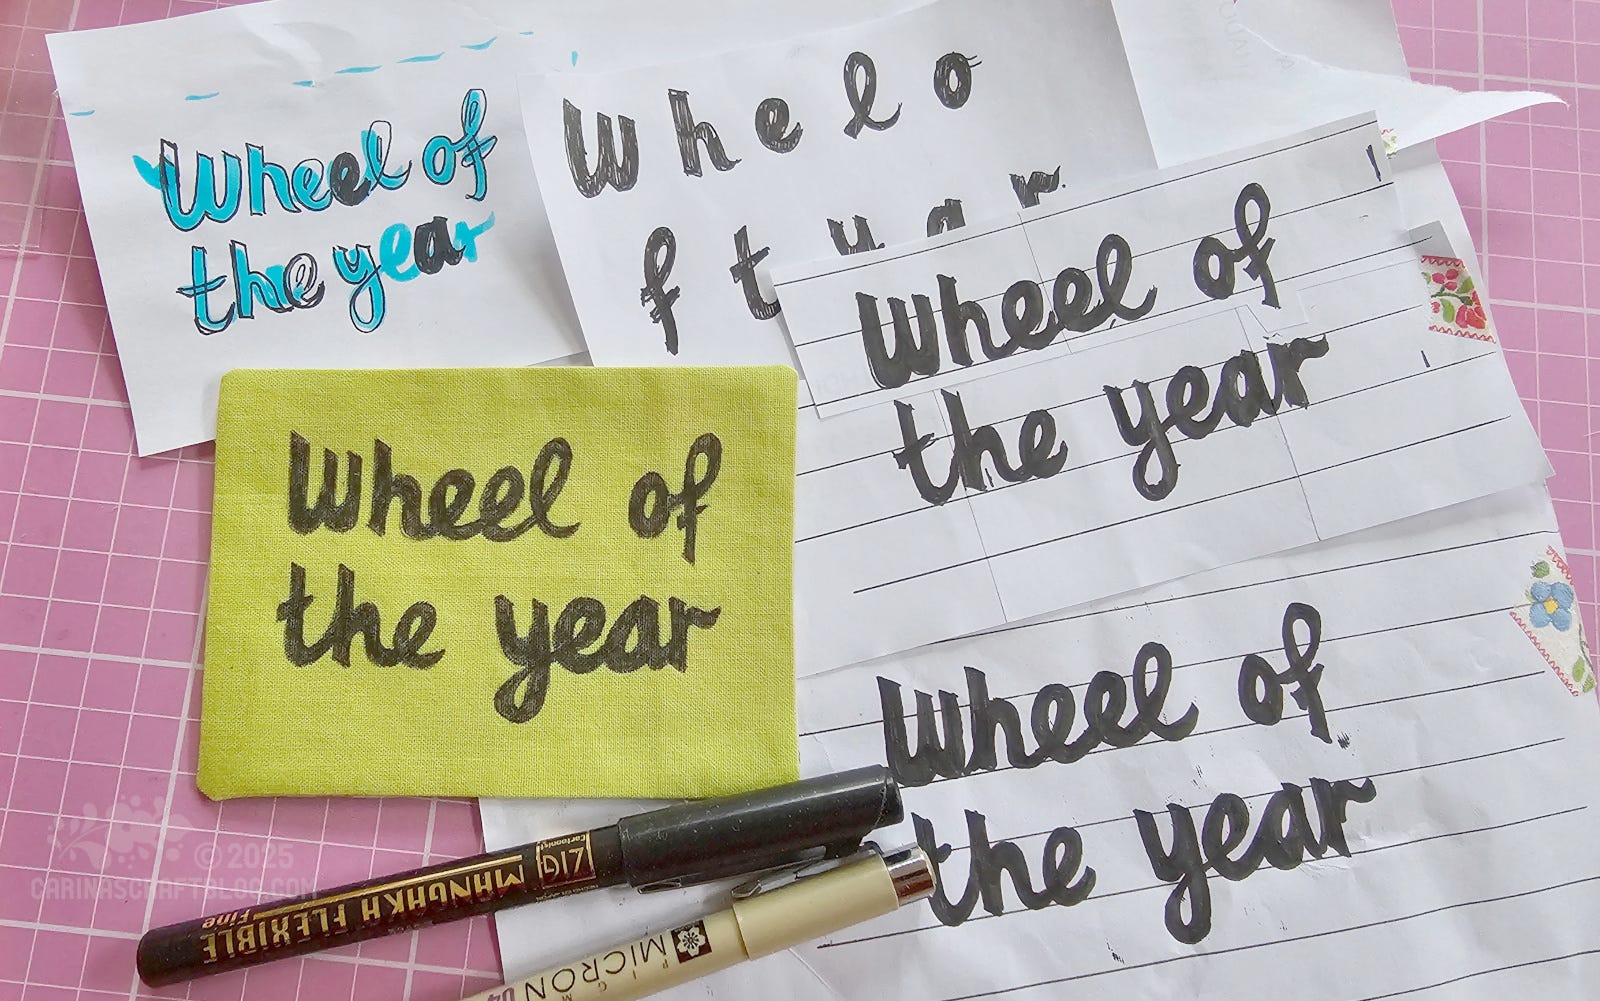 Wheel of
the year
W h e l o
f t y a r
Wheel of
the year
Wheel of
the year
Wheel of
the year
ZIG
Cartoonist
MANGAKA FLEXIBLE
Fine
PIGMA
MICRON
04
© 2025
CARINASCRAFTBLOG.COM